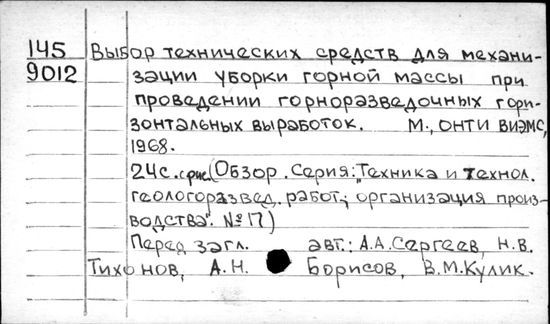 145 Выбор технических средств для механи-
9012 зации уборки горной массы при
проведении горноразведочных гори-
зонтальных выработок. М., ОНТИ ВИЭМС,
1968.
24с. с рис. (Обзор. Серия: "Техника и технол.
геологоразвед. работ; организация произ-
водства". №17)
Перед загл. авт.: А.А.Сергеев, Н.В.
Тихонов, А.Н. Борисов, В.М.Кулик.